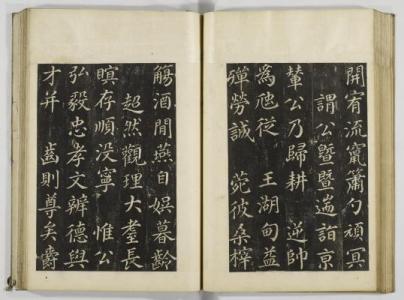 開宥流竄簫勺頑冥
謂公暨暨遄詣京
輦公乃歸耕 逆帥
為虺從 王湖甸益
殫勞誠 菀彼桑梓
觴酒閒燕自娛暮齡
超然觀理大耋長
瞑存順没寧 惟公
弘毅忠孝文辨德與
才并 齒則尊矣爵